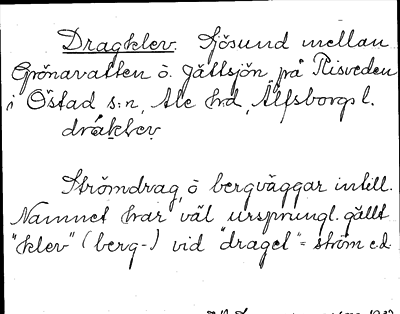 Dragklev. Sjösund mellan
Grönavatten o. Gällsjön, på Risveden
i Östad s:n, Ale hd, Älfsborgs l.
dráklev
Strömdrag, o bergväggar intill.
Namnet har väl ursprungl. gällt
"klev" (berg-) vid "draget" = ström ed.